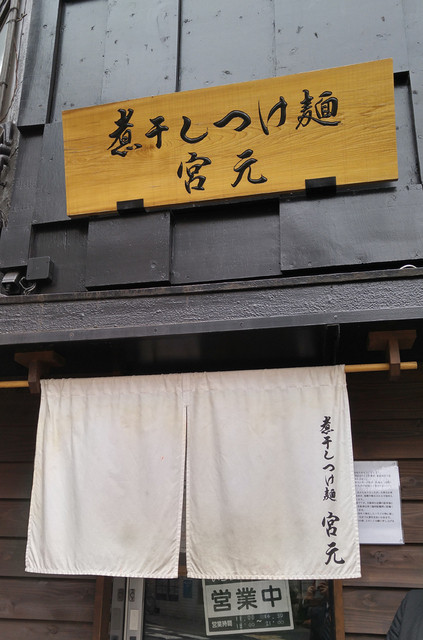 煮干しつけ麺
宮元
煮干しつけ麺 宮元
営業中
営業時間